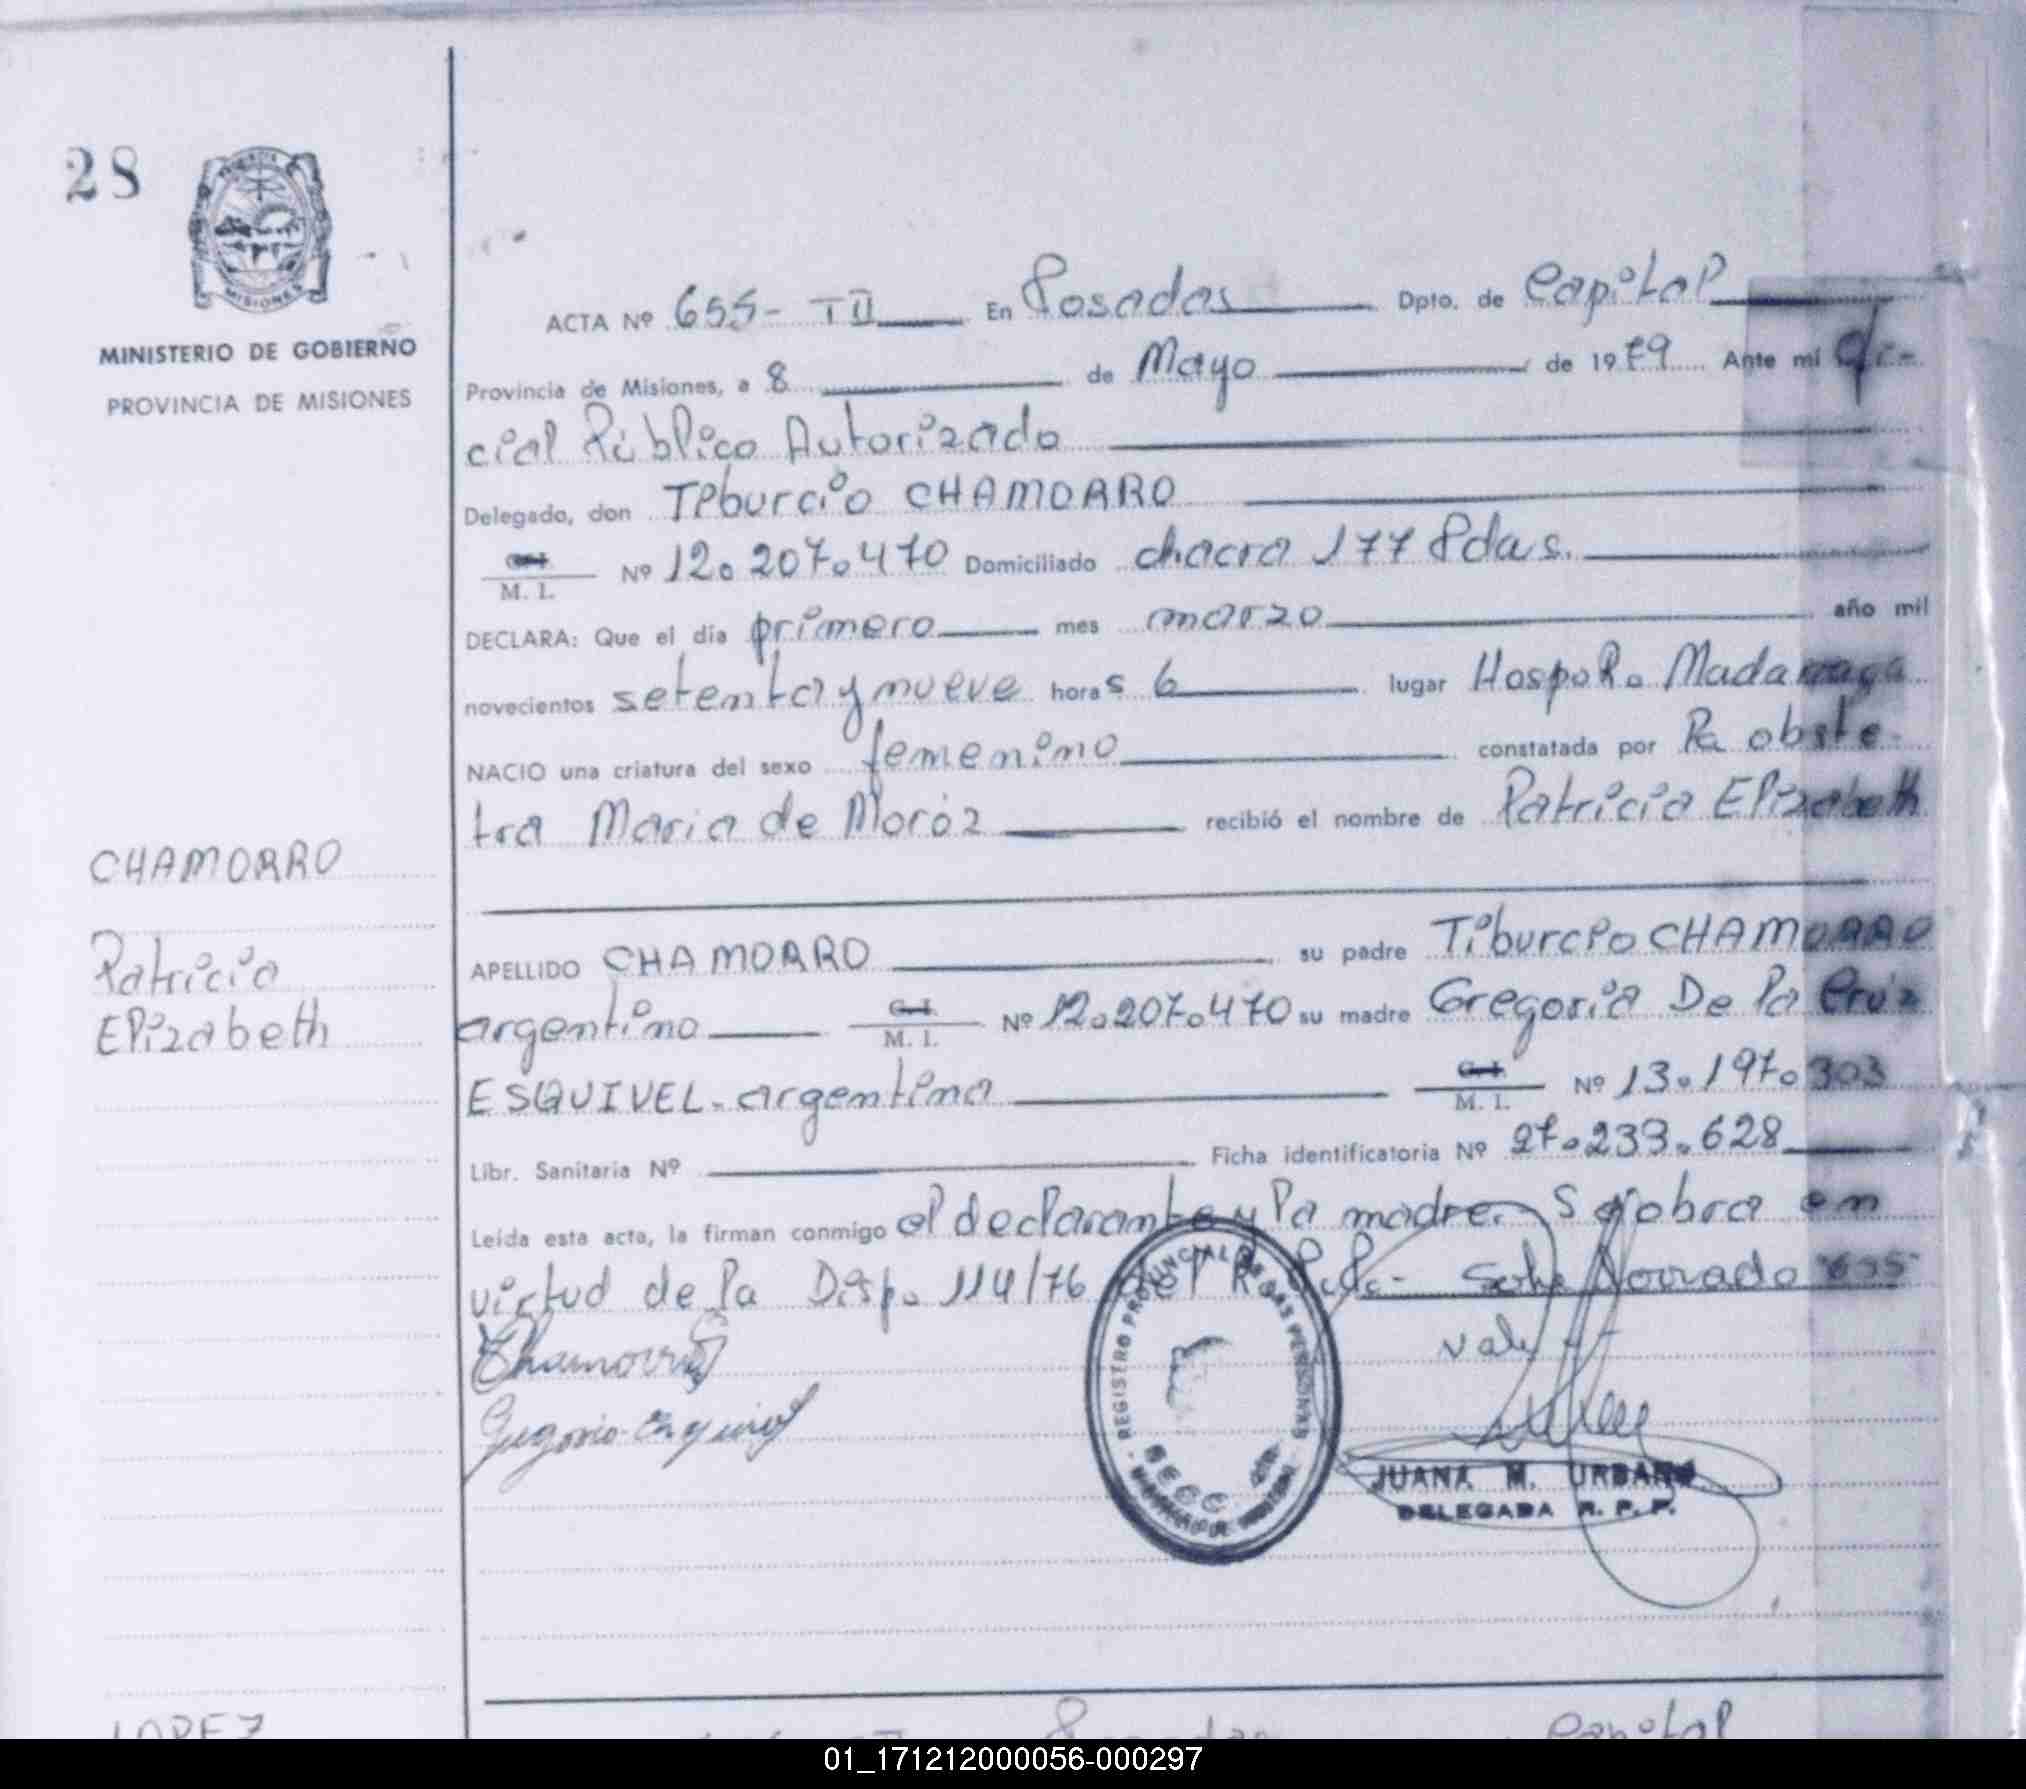 28
MISIONES
MINISTERIO DE GOBIERNO
PROVINCIA DE MISIONES
ACTA Nº 655- TII En Posadas Dpto. de Capital
Provincia de Misiones, a 8 de Mayo de 1979 Ante mi Ofi-
cial Público Autorizado
Delegado, don Tiburcio CHAMORRO
C.I.
M. I. Nº 12.207.470 Domiciliado chacra 177 Pdas.
DECLARA: Que el día primero mes marzo año mil
novecientos setenta y nueve horas 6 lugar Hosp. R. Madariaga
NACIO una criatura del sexo femenino constatada por la obste-
tra Maria de Moróz recibió el nombre de Patricia Elizabeth
CHAMORRO
Patricia
Elizabeth
APELLIDO CHAMORRO su padre Tiburcio CHAMORRO
argentino C.I. M. I. Nº 12.207.470 su madre Gregoria De la Cruz
ESQUIVEL. argentina C.I. M. I. Nº 13.197.303
Libr. Sanitaria Nº Ficha identificatoria Nº 27.233.628
Leída esta acta, la firman conmigo el declarante y la madre. Se obra en
virtud de la Disp. 114/76 del R. P. P.- Sobre borrado "655"
Vale
Chamorro
Gregoria Esquivel
REGISTRO PROVINCIAL DE LAS PERSONAS
SECC.
JUANA M. URBANO
DELEGADA R. P. P.
LOPEZ Posadas Capital
01_171212000056-000297